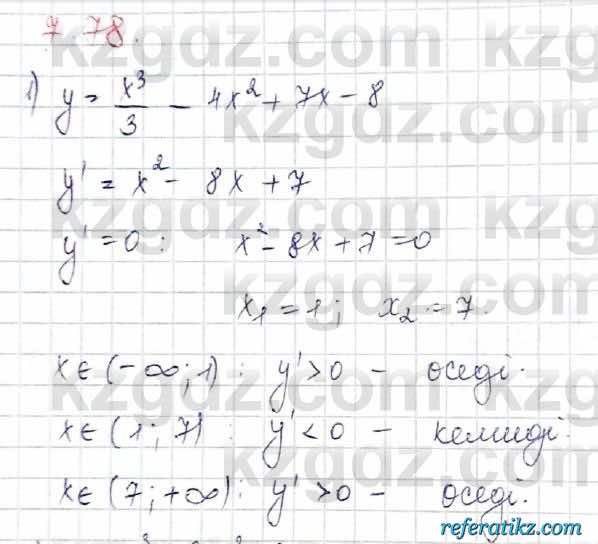 7.78.
1) y = x³/3 - 4x² + 7x - 8
y' = x² - 8x + 7
y' = 0 : x² - 8x + 7 = 0
x₁ = 1; x₂ = 7.
x ∈ (-∞; 1) : y' > 0 - өседі.
x ∈ (1; 7) : y' < 0 - кемиді.
x ∈ (7; +∞) : y' > 0 - өседі.
kzgdz.com
referatikz.com